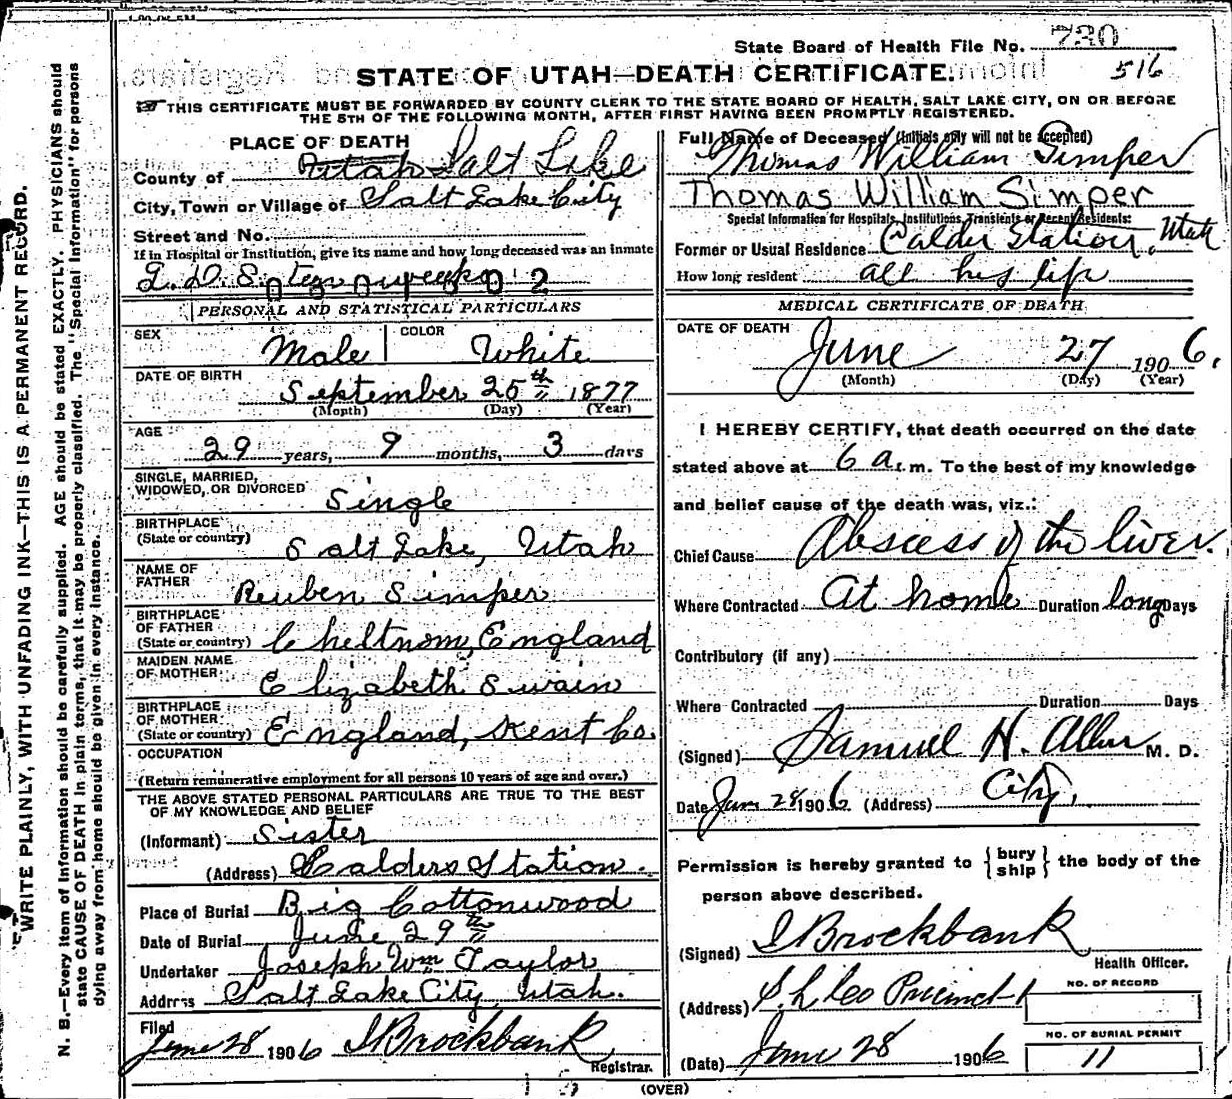 State Board of Health File No. 730
516
STATE OF UTAH—DEATH CERTIFICATE.
THIS CERTIFICATE MUST BE FORWARDED BY COUNTY CLERK TO THE STATE BOARD OF HEALTH, SALT LAKE CITY, ON OR BEFORE
THE 5TH OF THE FOLLOWING MONTH, AFTER FIRST HAVING BEEN PROMPTLY REGISTERED.
WRITE PLAINLY, WITH UNFADING INK—THIS IS A PERMANENT RECORD.
N. B.—Every item of information should be carefully supplied. AGE should be stated EXACTLY. PHYSICIANS should
state CAUSE OF DEATH in plain terms, that it may be properly classified. The "Special Information" for persons
dying away from home should be given in every instance.
PLACE OF DEATH
County of Utah Salt Lake
City, Town or Village of Salt Lake City
Street and No.
If in Hospital or Institution, give its name and how long deceased was an inmate
L. D. S. ten weeks
PERSONAL AND STATISTICAL PARTICULARS
SEX Male COLOR White
DATE OF BIRTH
September 25th 1877
(Month) (Day) (Year)
AGE
29 years, 9 months, 3 days
SINGLE, MARRIED,
WIDOWED, OR DIVORCED Single
BIRTHPLACE
(State or country) Salt Lake, Utah
NAME OF
FATHER Reuben Simper
BIRTHPLACE
OF FATHER
(State or country) Cheltnom, England
MAIDEN NAME
OF MOTHER Elizabeth Swain
BIRTHPLACE
OF MOTHER
(State or country) England, Kent Co.
OCCUPATION
(Return remunerative employment for all persons 10 years of age and over.)
THE ABOVE STATED PERSONAL PARTICULARS ARE TRUE TO THE BEST
OF MY KNOWLEDGE AND BELIEF
(Informant) Sister
(Address) Calders Station.
Place of Burial Big Cottonwood
Date of Burial June 29th
Undertaker Joseph Wm Taylor
Address Salt Lake City, Utah.
Filed
June 28 1906 S Brockbank
Registrar.
Full Name of Deceased (Initials only will not be accepted)
Thomas William Simper
Thomas William Simper
Special Information for Hospitals, Institutions, Transients or Recent Residents:
Former or Usual Residence Calder Station, Utah
How long resident all his life
MEDICAL CERTIFICATE OF DEATH
DATE OF DEATH
June 27 1906.
(Month) (Day) (Year)
I HEREBY CERTIFY, that death occurred on the date
stated above at 6 a.m. To the best of my knowledge
and belief cause of the death was, viz.:
Chief Cause Abscess of the liver.
Where Contracted At home Duration long Days
Contributory (if any)
Where Contracted Duration Days
(Signed) Samuel H. Allen M. D.
Date Jun 28 1906 (Address) City.
Permission is hereby granted to { bury ship } the body of the
person above described.
(Signed) S Brockbank
Health Officer.
(Address) S. L. Co Precinct 1
NO. OF RECORD
(Date) June 28 1906
NO. OF BURIAL PERMIT
11
(OVER)